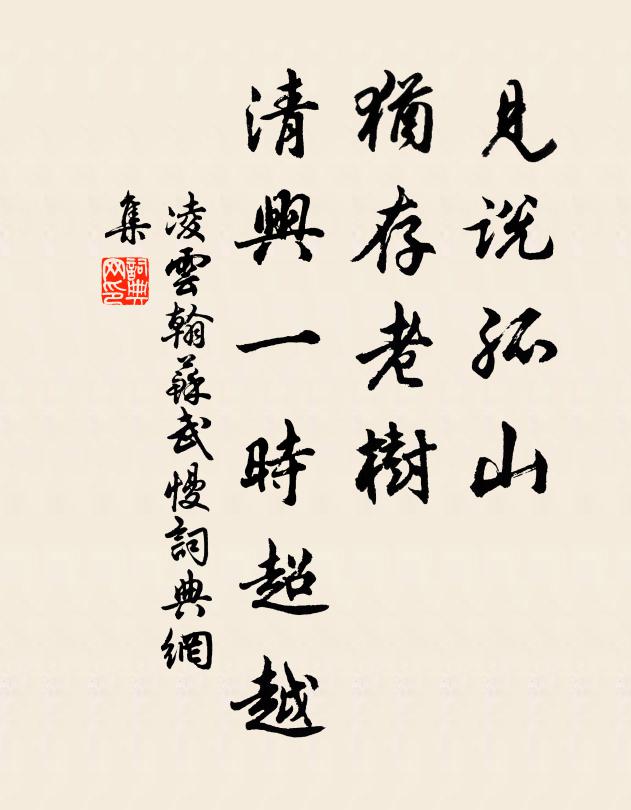 見說孤山
猶存老樹
清興一時超越
凌雲翰蘇武慢詞典網
集
詞典
网印